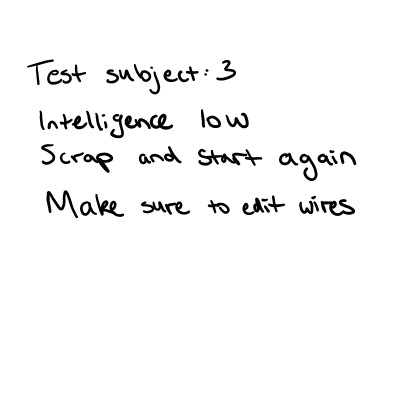 Test subject: 3
Intelligence low
Scrap and start again
Make sure to edit wires